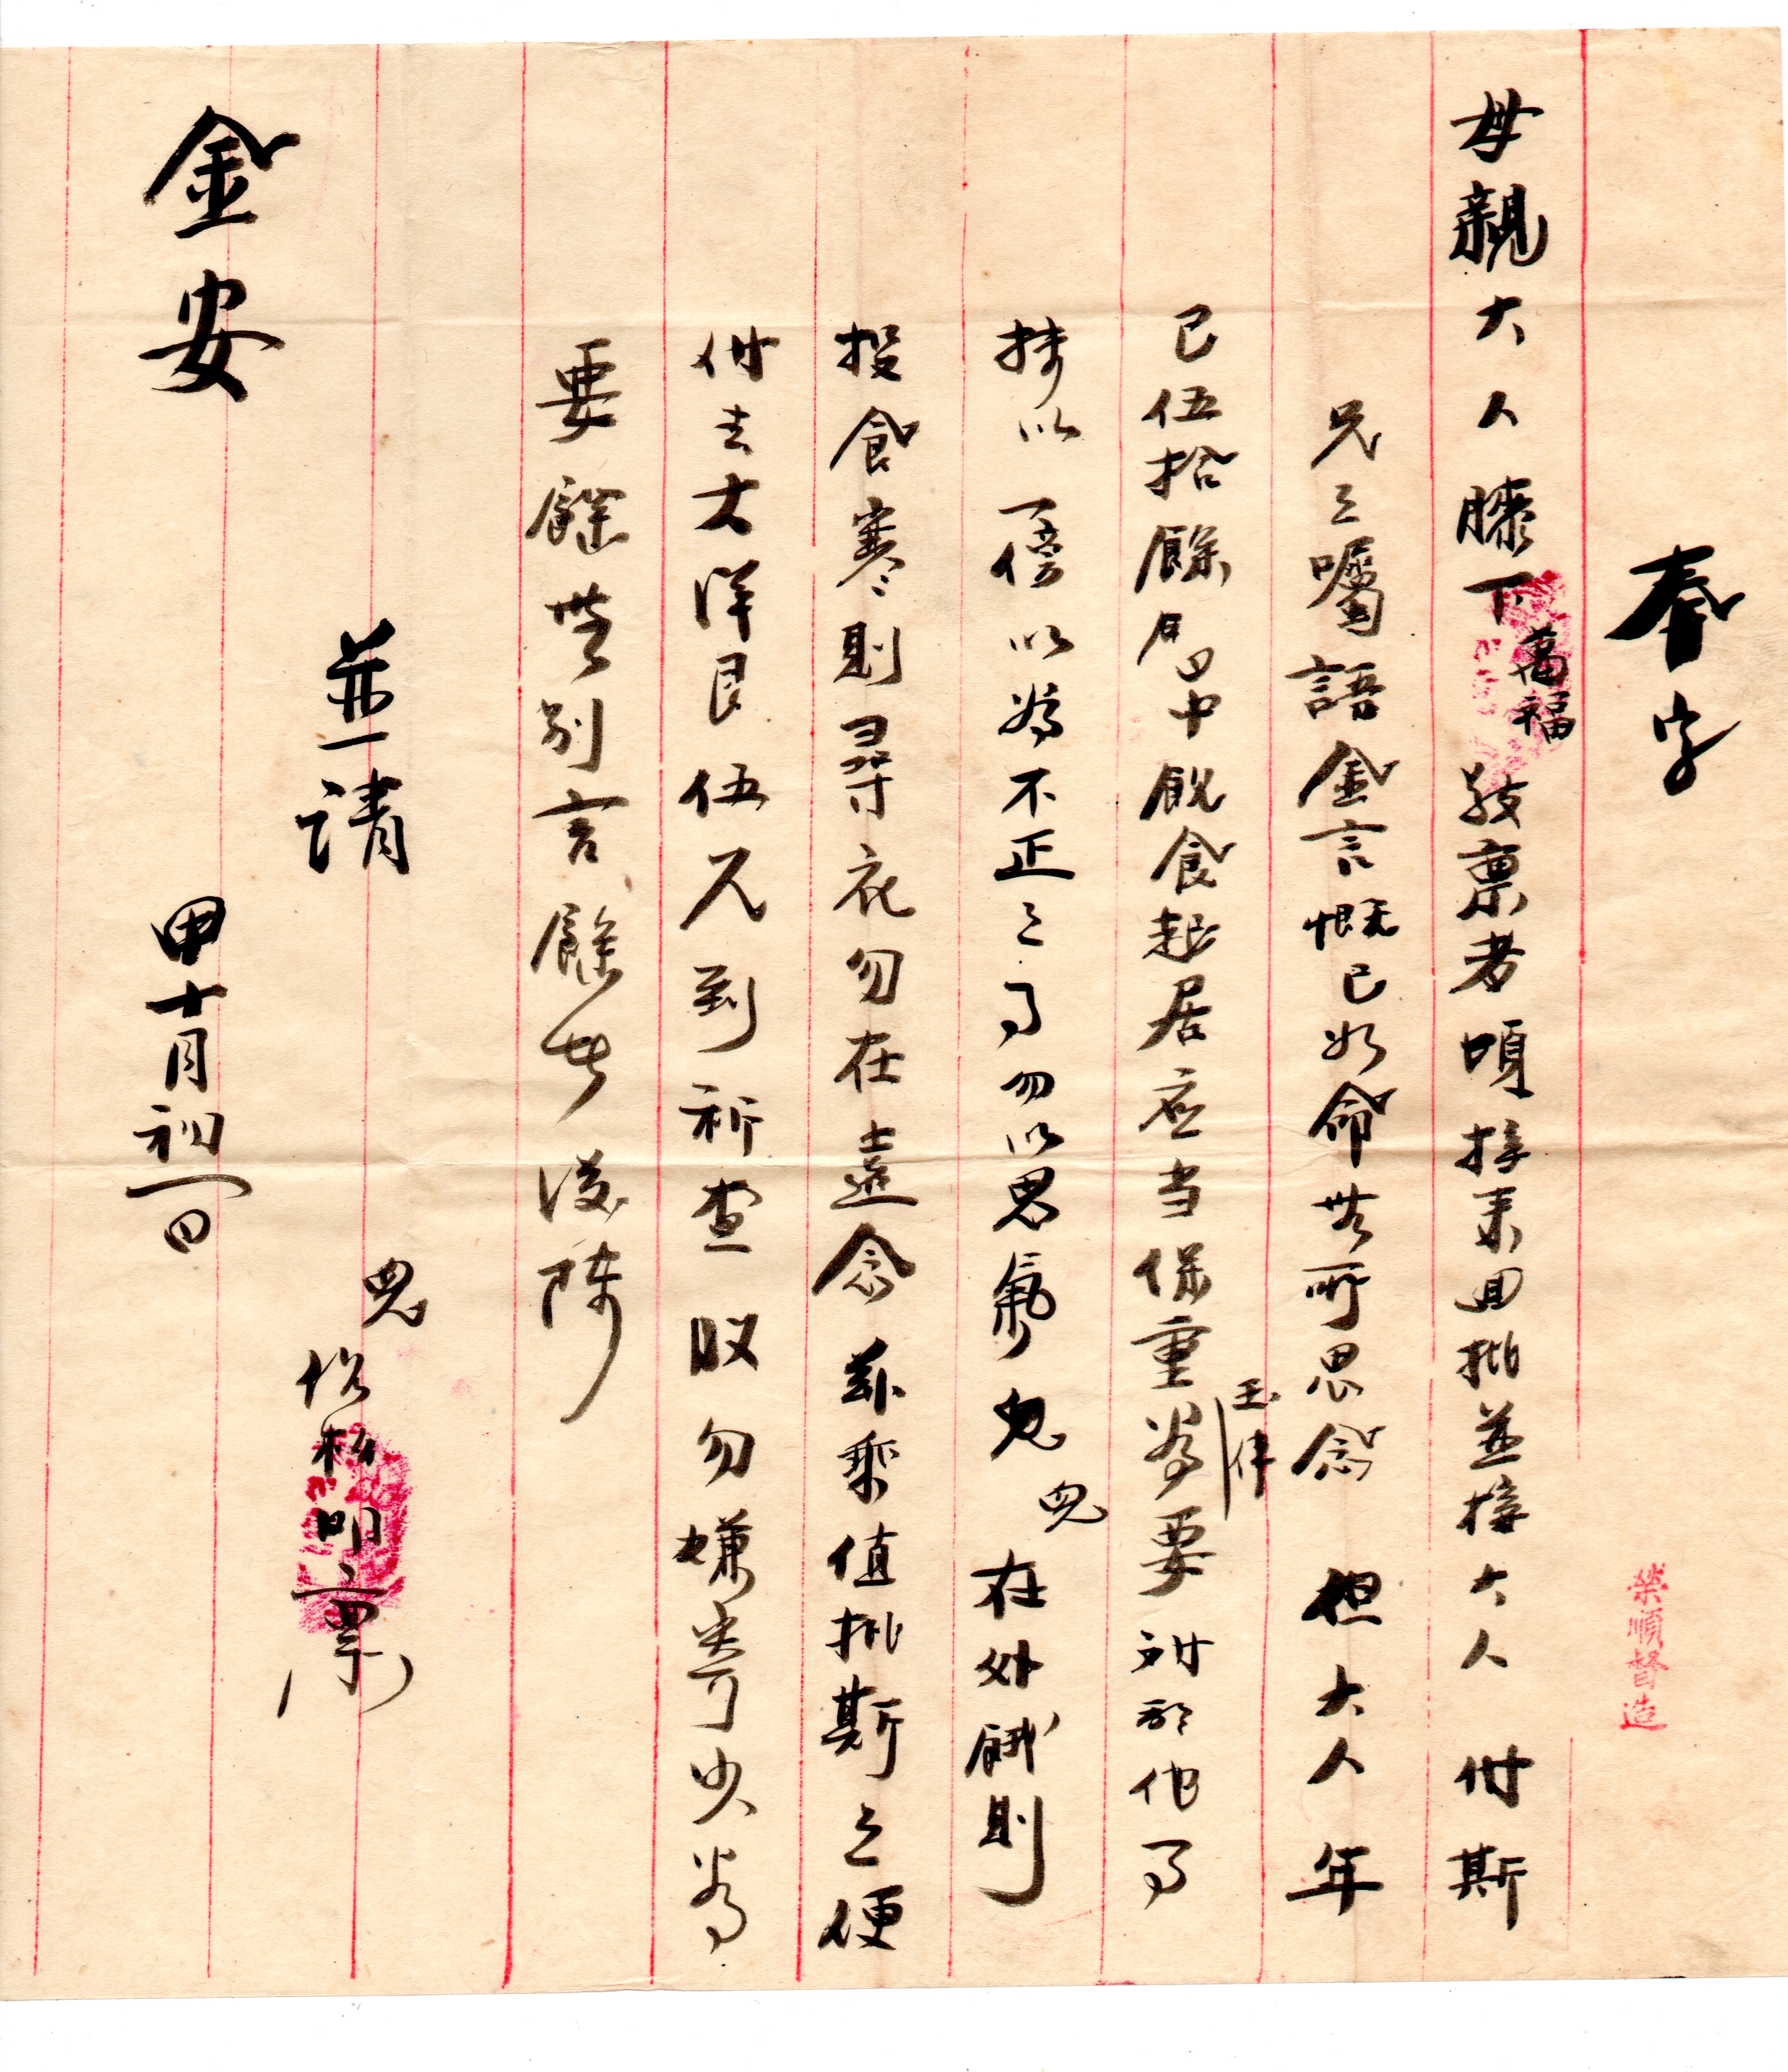 奉字
母親大人膝下萬福 敬稟者頃接來回批並接大人付斯
兄之囑語金言慨已如命無所思念 但大人年
已伍拾餘 中飲食起居应当保重為要 玉体 他
以 以為不正之 勿以 氣 兒 在外餓則
投食寒則尋衣勿在遠念 茲乘值批斯之便
付去大洋艮伍元到祈查收勿嫌寄少為
要餘無別言餘 後陳
並請
金安
兒 松明稟
甲十月初一日
榮順督造